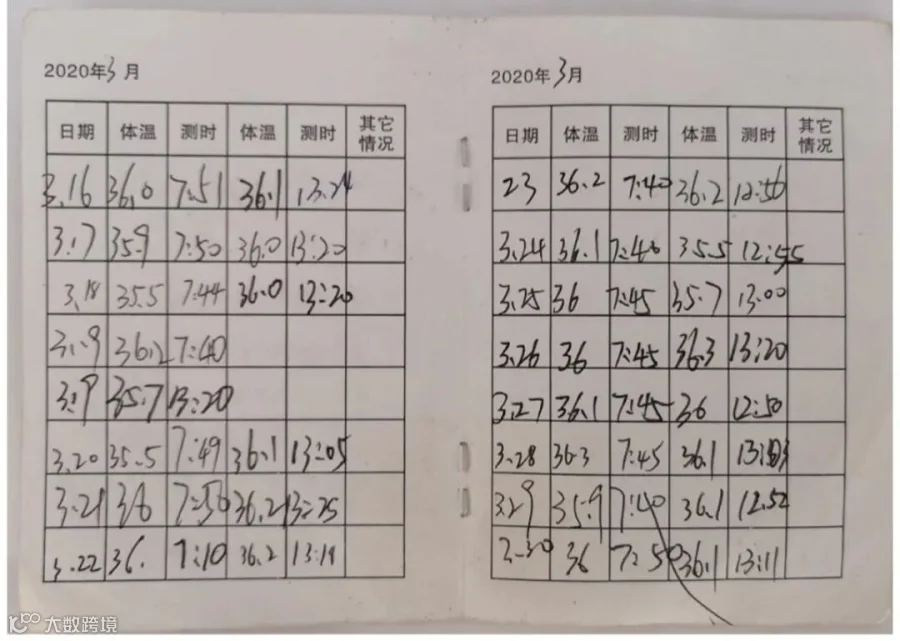 2020年3月
日期 体温 测时 体温 测时 其它情况
3.16 36.0 7:51 36.1 13:24
3.17 35.9 7:50 36.0 13:20
3.18 35.5 7:44 36.0 13:20
3.19 36.2 7:40
3.19 35.7 13:20
3.20 35.5 7:49 36.1 13:05
3.21 36 7:50 36.2 13:25
3.22 36. 7:10 36.2 13:19
2020年3月
日期 体温 测时 体温 测时 其它情况
23 36.2 7:40 36.2 12:56
3.24 36.1 7:40 35.5 12:55
3.25 36 7:45 35.7 13:00
3.26 36 7:45 36.3 13:20
3.27 36.1 7:45 36 12:50
3.28 36.3 7:45 36.1
3.29 35.9 7:40 36.1 12.52
3.30 36 7:50 36.1 13:11
大数跨境